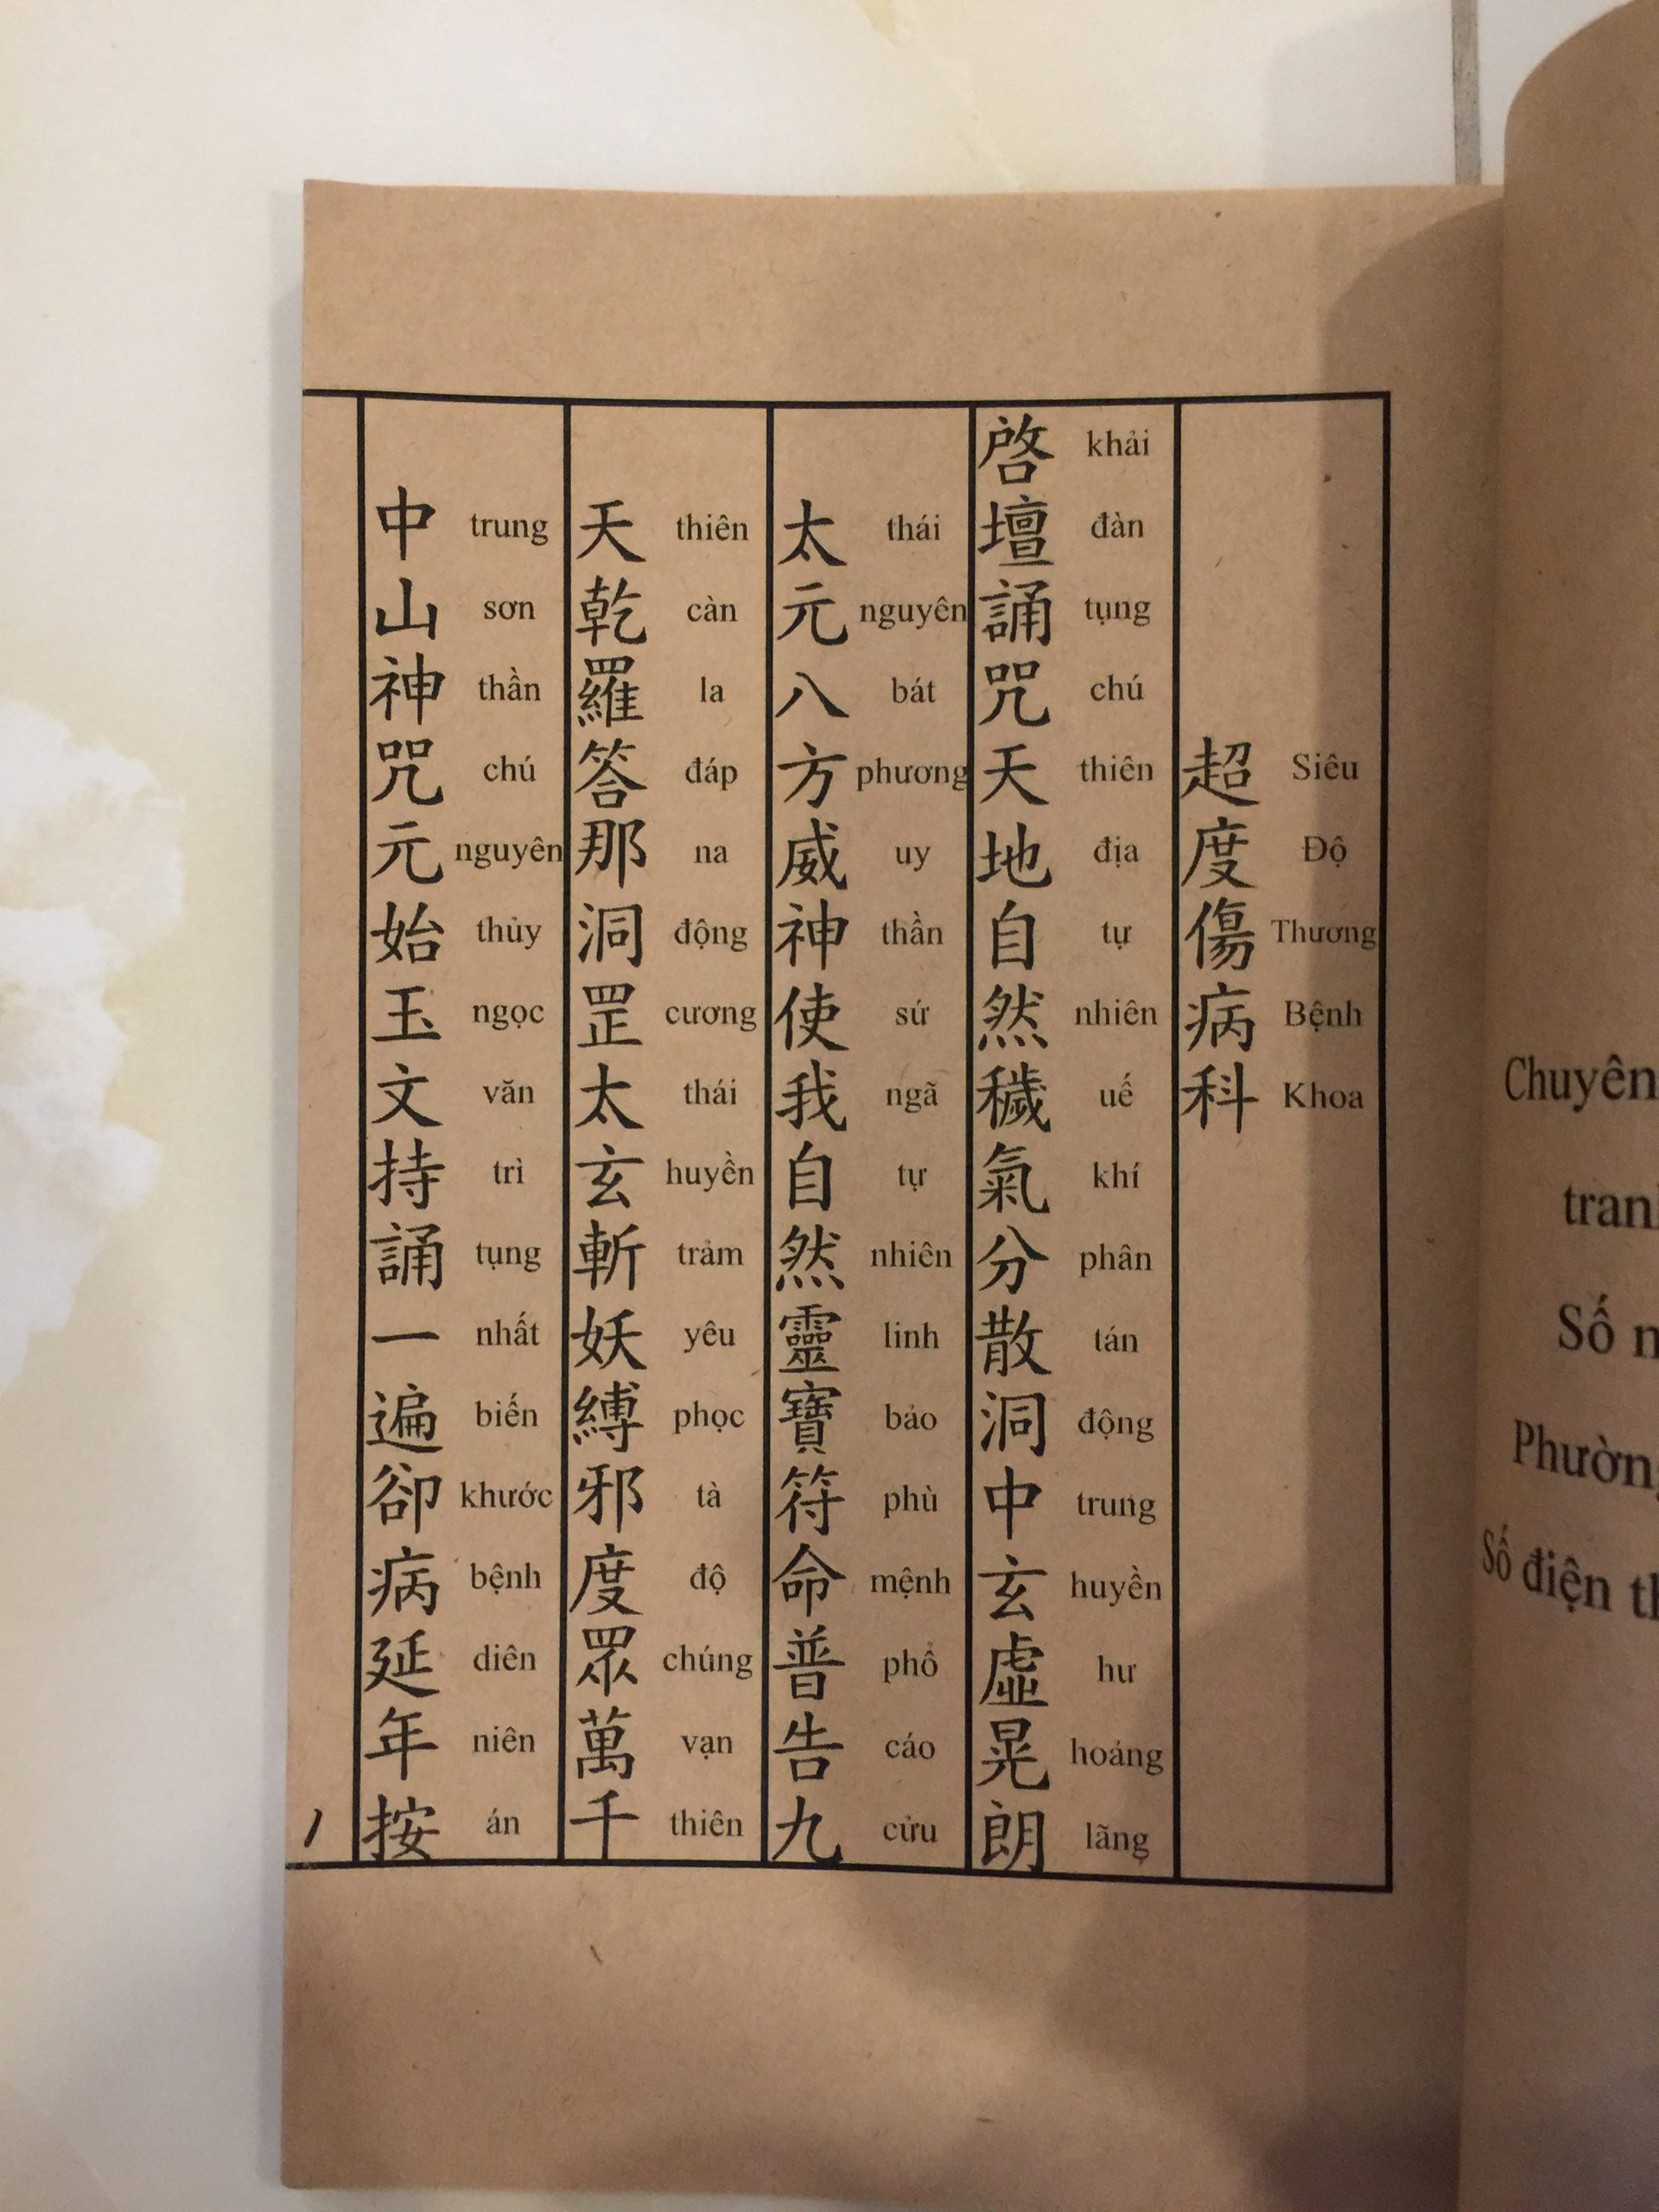 超度傷病科
Siêu Độ Thương Bệnh Khoa
啓壇誦咒天地自然穢氣分散洞中玄虛晃朗
khải đàn tụng chú thiên địa tự nhiên uế khí phân tán động trung huyền hư hoảng lãng
太元八方威神使我自然靈寶符命普告九
thái nguyên bát phương uy thần sứ ngã tự nhiên linh bảo phù mệnh phổ cáo cửu
天乾羅答那洞罡太玄斬妖縛邪度眾萬千
thiên càn la đáp na động cương thái huyền trảm yêu phọc tà độ chúng vạn thiên
中山神咒元始玉文持誦一遍卻病延年按
trung sơn thần chú nguyên thủy ngọc văn trì tụng nhất biến khước bệnh diên niên án
Chuyên
Số
Số điện